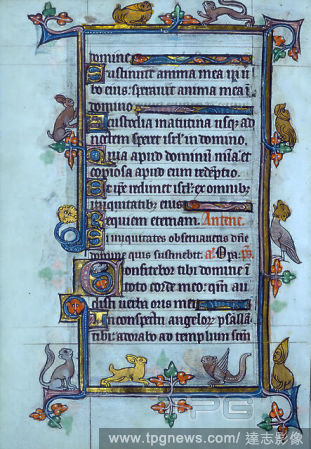 domine
Sustinuit anima mea in ver
bo eius: speravit anima mea i
domino
A custodia matutina usq; ad
noctem speret isrl' in domino.
Quia apud dominū mīa: et
copiosa apud eum redēptio
Et ip̄e redimet isrl' ex omnibȝ
iniquitatibȝ eius
Requiem eternam. Antene.
Si iniquitates observaveris dn̄e
domine quis sustinebit. a. Opa. ps.
Confitebor tibi domine i
toto corde meo: qm̄ au
disti verba oris mei
In conspectu angelorȝ psalla
tibi: adorabo ad templum scm̄
PG
www.tpgnews.com/達志影像